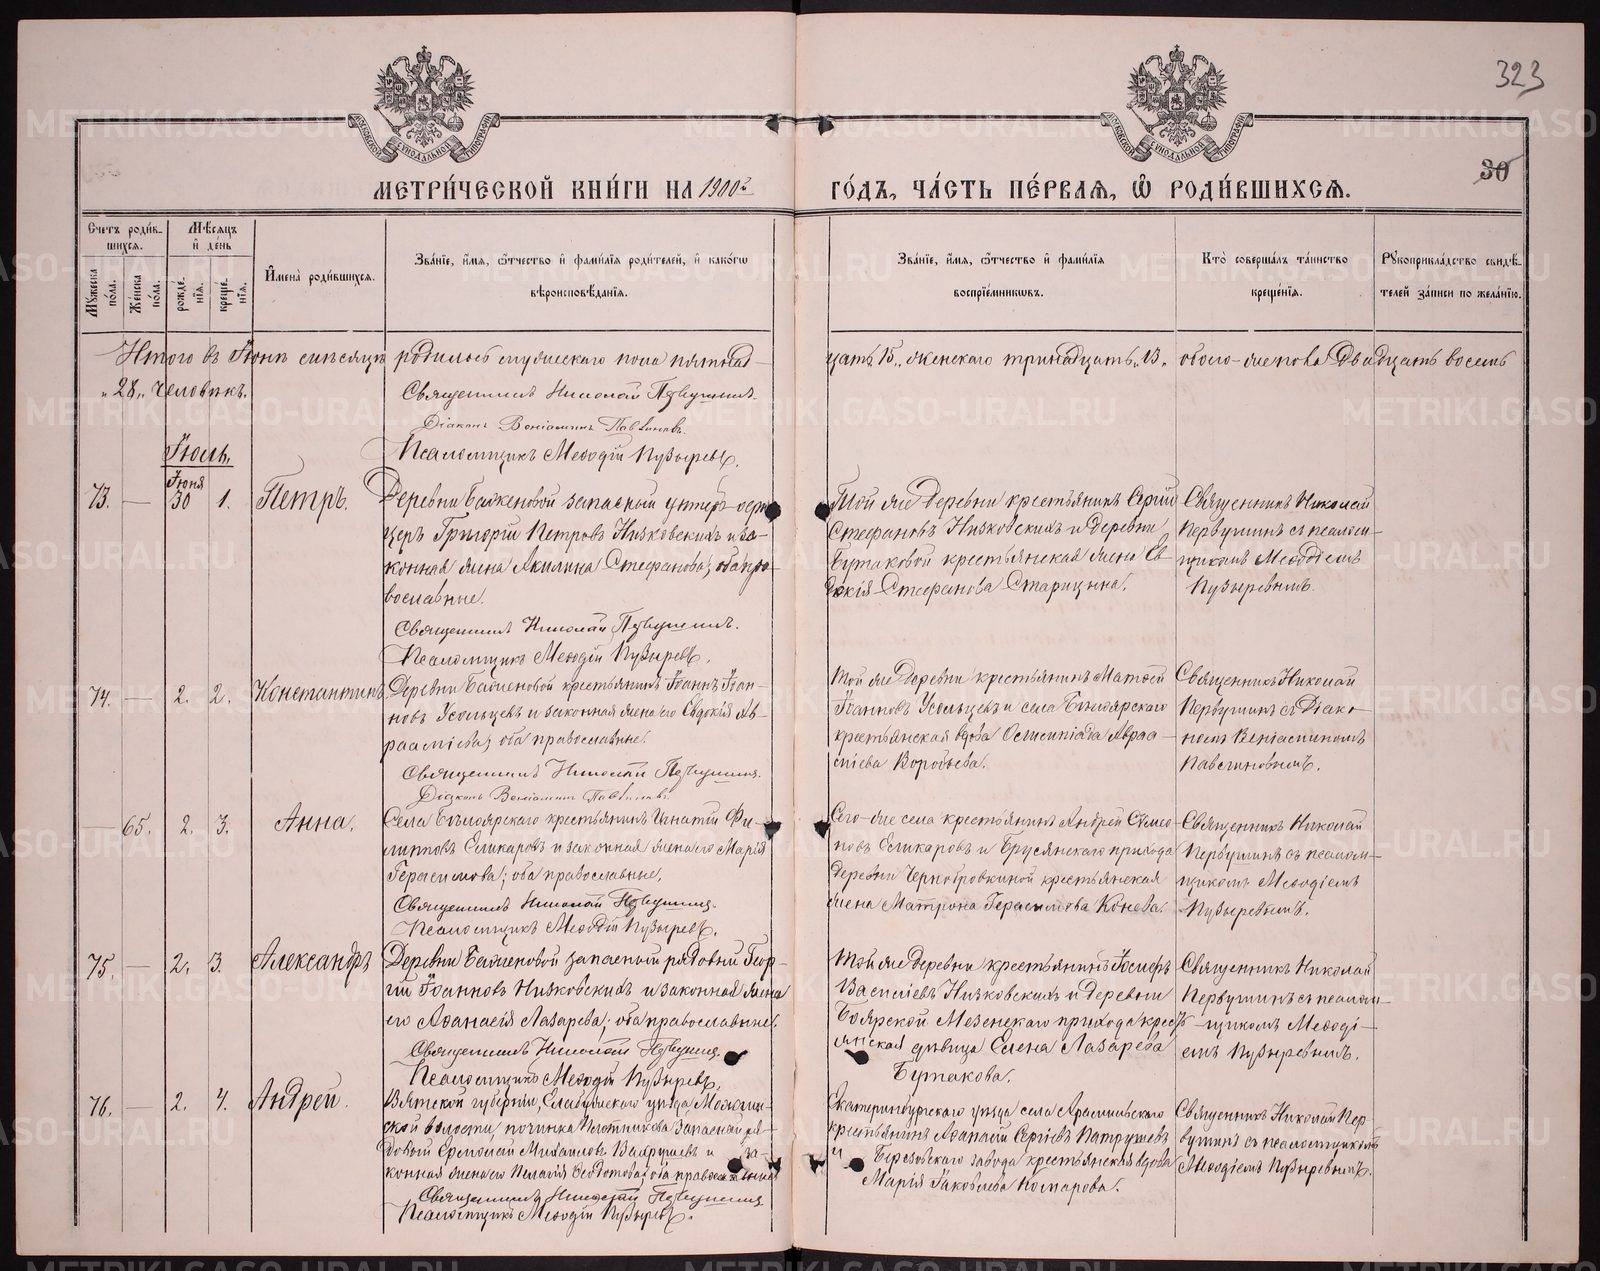 323
30
МОСКОВСКОЙ СѴНОДАЛЬНОЙ ТИПОГРАФІИ
МОСКОВСКОЙ СѴНОДАЛЬНОЙ ТИПОГРАФІИ
МЕТРИ́ЧЕСКОЙ КНИ́ГИ НА 1900й ГО́ДЪ, ЧА́СТЬ ПЕ́РВАѦ, Ѡ҆ РОДИ́ВШИХСѦ.
Счетъ роди́вшихсѧ.
Мꙋ́жеска по́ла.
Же́нска по́ла.
Мѣ́сѧцъ и҆ де́нь
рожде́нїѧ.
креще́нїѧ.
И҆мена̀ роди́вшихсѧ.
Зва́нїе, и҆́мѧ, ѻ҆́тчество и҆ фами́лїѧ роди́телей, и҆ како́гѡ
вѣроисповѣ́данїѧ.
Зва́нїе, и҆́мѧ, ѻ҆́тчество и҆ фами́лїѧ
воспрїе́мникѡвъ.
Кто̀ соверша́лъ та́инство
креще́нїѧ.
Рꙋкоприкла́дство свидѣ́-
телей за́писи по жела́нїю.
Итого въ Іюнѣ мѣсяцѣ родилось мужескаго пола пятнад-
цать "15", женскаго тринадцать "13", обоего же пола двадцать восемь
"28" человѣкъ.
Священникъ Николай Первушинъ.
Діаконъ Веніаминъ Павлиновъ.
Псаломщикъ Меѳодій Пузыревъ.
Іюль.
73. — Іюня 30 1. Петръ.
Деревни Баженовой запасный унтеръ-офи-
церъ Григорій Петровъ Низковскихъ и за-
конная жена Акилина Стефанова; оба пра-
вославные.
Священникъ Николай Первушинъ.
Псаломщикъ Меѳодій Пузыревъ.
Той же деревни крестьянинъ Сергій
Стефановъ Низковскихъ и деревни
Бутаковой крестьянская жена Ев-
докія Стефанова Старицына.
Священникъ Николай
Первушинъ съ псалом-
щикомъ Меѳодіемъ
Пузыревымъ.
74. — 2. 2. Константинъ.
Деревни Баженовой крестьянинъ Іоаннъ Іоан-
новъ Усольцевъ и законная жена его Евдокія Ав-
рааміева; оба православные.
Священникъ Николай Первушинъ.
Діаконъ Веніаминъ Павлиновъ.
Той же деревни крестьянинъ Матѳей
Іоанновъ Усольцевъ и села Бѣлоярскаго
крестьянская вдова Олимпіада Авраа-
міева Воробьева.
Священникъ Николай
Первушинъ съ Діако-
номъ Веніаминомъ
Павлиновымъ.
— 65. 2. 3. Анна.
Села Бѣлоярскаго крестьянинъ Игнатій Фи-
липповъ Семкаровъ и законная жена его Марія
Герасимова; оба православные.
Священникъ Николай Первушинъ.
Псаломщикъ Меѳодій Пузыревъ.
Сего-же села крестьянинъ Андрей Симео-
новъ Семкаровъ и Брусянскаго прихода
деревни Чернобровкиной крестьянская
жена Матрона Герасимова Конева.
Священникъ Николай
Первушинъ съ псалом-
щикомъ Меѳодіемъ
Пузыревымъ.
75. — 2. 3. Александръ
Деревни Баженовой запасный рядовой Геор-
гій Іоанновъ Низковскихъ и законная жена
его Аѳанасія Лазарева; оба православные.
Священникъ Николай Первушинъ.
Псаломщикъ Меѳодій Пузыревъ.
Той же деревни крестьянинъ Іосифъ
Василіевъ Низковскихъ и деревни
Боярской Мезенскаго прихода кресть-
янская дѣвица Елена Лазарева
Бутакова.
Священникъ Николай
Первушинъ съ псалом-
щикомъ Меѳоді-
емъ Пузыревымъ.
76. — 2. 4. Андрей.
Вятской губерніи, Елабужскаго уѣзда
волости, починка Плотникова запасной ря-
довой Ермолай Михаиловъ Вахрушевъ и за-
конная жена его Пелагія Ѳеодотова; оба православные
Священникъ Николай Первушинъ
Псаломщикъ Меѳодій Пузыревъ.
Екатеринбургскаго уѣзда села Арамильскаго
крестьянинъ Аѳанасій Сергіевъ Патрушевъ
и Березовскаго завода крестьянская вдова
Марія Іаковлева Комарова.
Священникъ Николай Пер-
вушинъ съ псаломщикомъ
Меѳодіемъ Пузыревымъ.
METRIKI.GASO-URAL.RU